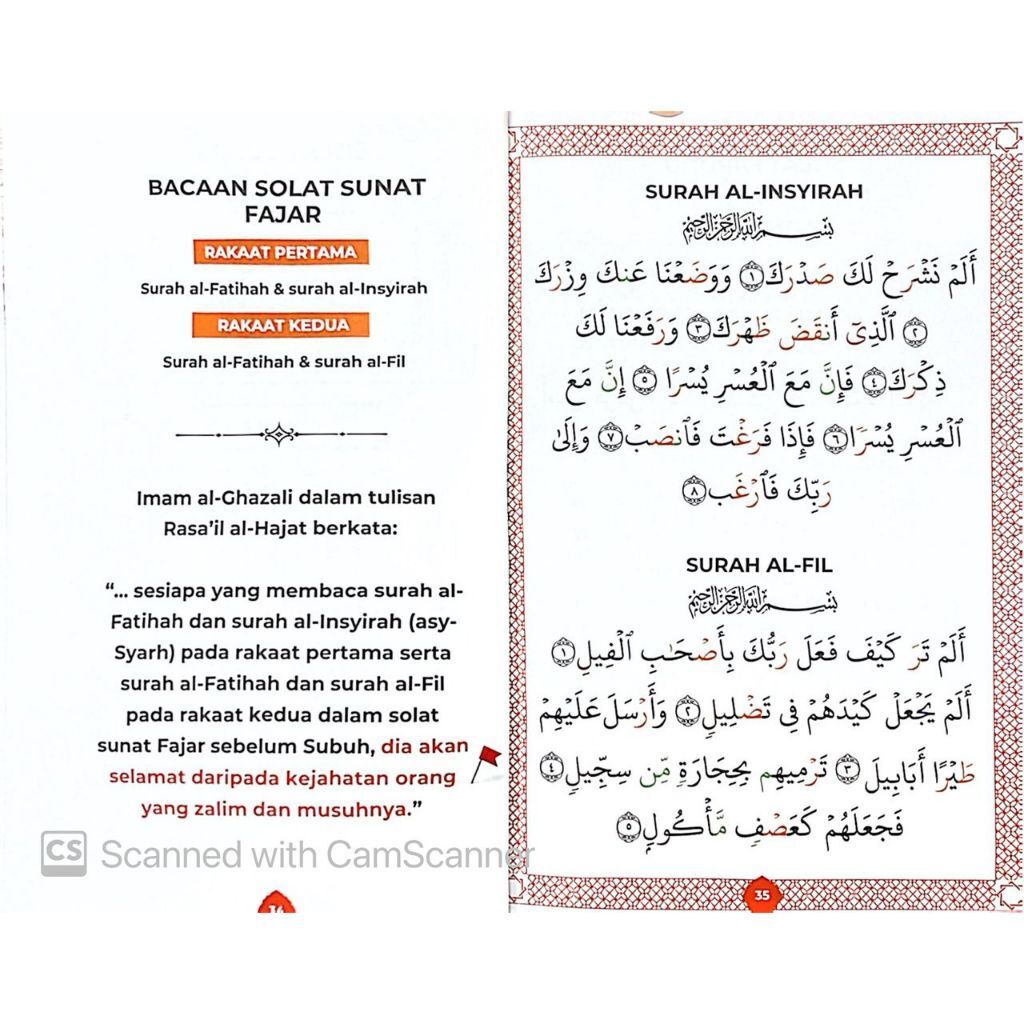 BACAAN SOLAT SUNAT
FAJAR
RAKAAT PERTAMA
Surah al-Fatihah & surah al-Insyirah
RAKAAT KEDUA
Surah al-Fatihah & surah al-Fil
Imam al-Ghazali dalam tulisan
Rasa’il al-Hajat berkata:
“... sesiapa yang membaca surah al-
Fatihah dan surah al-Insyirah (asy-
Syarh) pada rakaat pertama serta
surah al-Fatihah dan surah al-Fil
pada rakaat kedua dalam solat
sunat Fajar sebelum Subuh, dia akan
selamat daripada kejahatan orang
yang zalim dan musuhnya.”
CS Scanned with CamScanner
34
SURAH AL-INSYIRAH
بِسْمِ اللَّهِ الرَّحْمَٰنِ الرَّحِيمِ
أَلَمۡ نَشۡرَحۡ لَكَ صَدۡرَكَ ١ وَوَضَعۡنَا عَنكَ وِزۡرَكَ
٢ ٱلَّذِيٓ أَنقَضَ ظَهۡرَكَ ٣ وَرَفَعۡنَا لَكَ
ذِكۡرَكَ ٤ فَإِنَّ مَعَ ٱلۡعُسۡرِ يُسۡرًا ٥ إِنَّ مَعَ
ٱلۡعُسۡرِ يُسۡرٗا ٦ فَإِذَا فَرَغۡتَ فَٱنصَبۡ ٧ وَإِلَىٰ
رَبِّكَ فَٱرۡغَب ٨
SURAH AL-FIL
بِسْمِ اللَّهِ الرَّحْمَٰنِ الرَّحِيمِ
أَلَمۡ تَرَ كَيۡفَ فَعَلَ رَبُّكَ بِأَصۡحَٰبِ ٱلۡفِيلِ ١
أَلَمۡ يَجۡعَلۡ كَيۡدَهُمۡ فِي تَضۡلِيلٖ ٢ وَأَرۡسَلَ عَلَيۡهِمۡ
طَيۡرًا أَبَابِيلَ ٣ تَرۡمِيهِم بِحِجَارَةٖ مِّن سِجِّيلٖ ٤
فَجَعَلَهُمۡ كَعَصۡفٖ مَّأۡكُولِۭ ٥
35